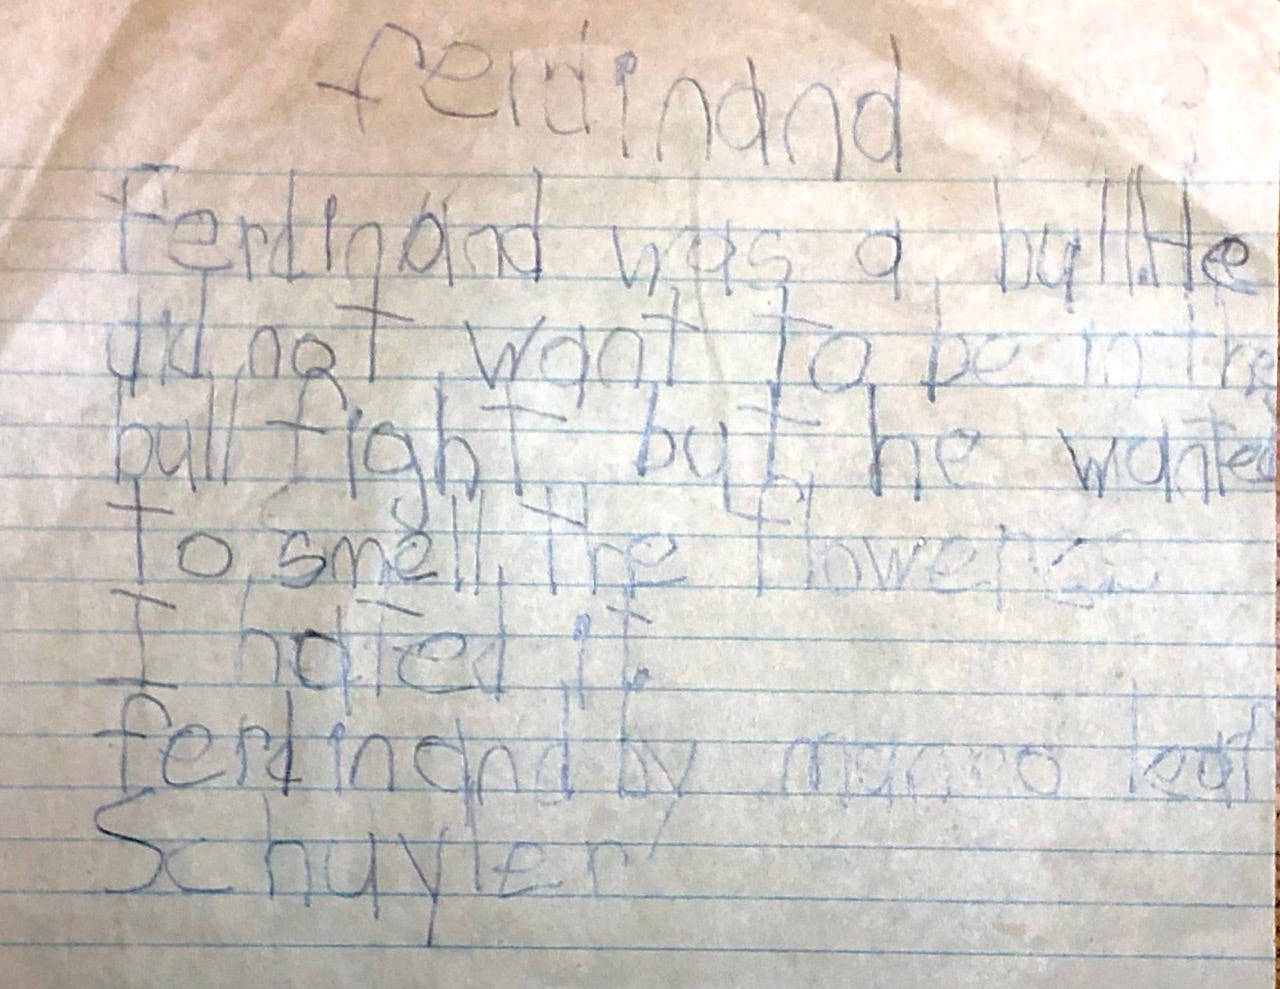 ferdinand
Ferdinand was a bull. He
did not want to be in the
bull fight but he wanted
to smell the flowers
I hated it.
ferdinand by munro leaf
Schuyler